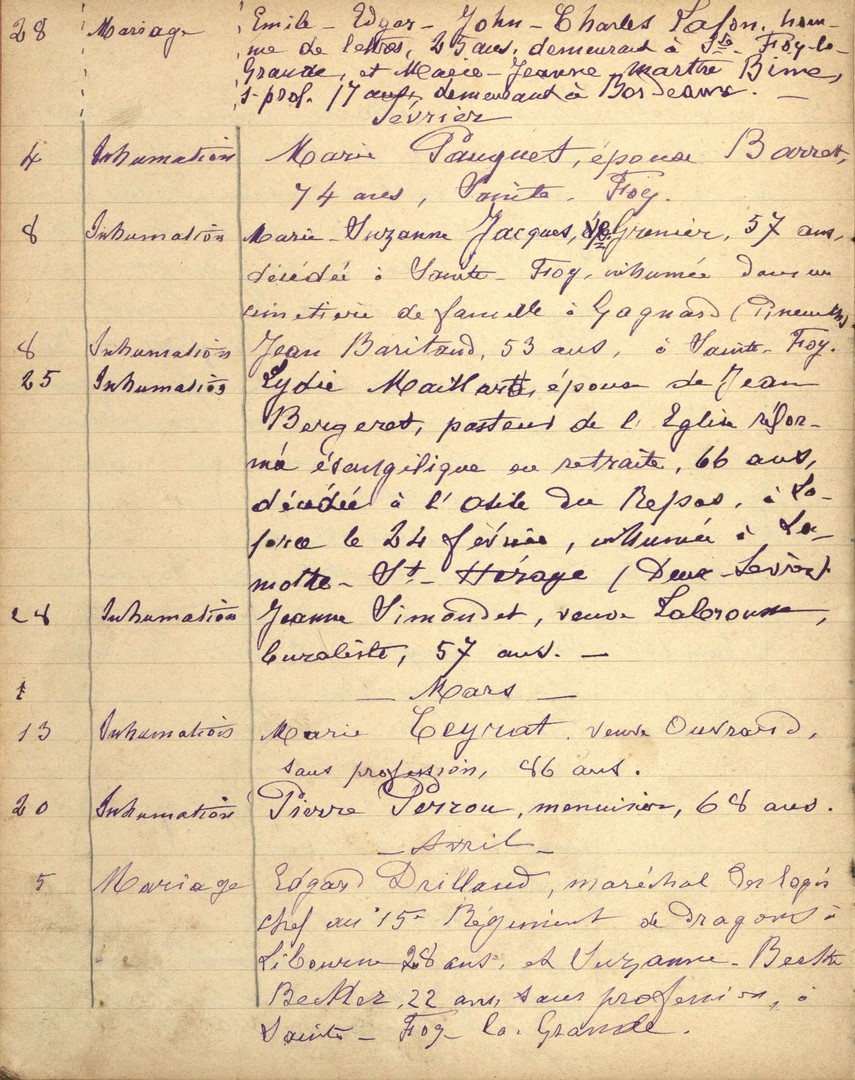 28 Mariage Emile - Edgar - John - Charles Lafon, hom-
me de lettres, 25 ans, demeurant à Ste Foy-la-
Grande, et Marie-Jeanne-Marthe Bime,
s-prof. 17 ans, demeurant à Bordeaux. -
Février
4 Inhumation Marie Pauquet, épouse Barret,
74 ans, Sainte-Foy.
8 Inhumation Marie-Suzanne Jacques, Grenier, 57 ans,
décédée à Sainte-Foy, inhumée dans un
cimetière de famille à Gagnard (Pineuilh)
8 Inhumation Jean Baritaud, 53 ans, à Sainte-Foy.
25 Inhumation Lydie Maillard, épouse de Jean
Bergeret, pasteur de l'Eglise réfor-
mée évangélique en retraite, 66 ans,
décédée à l'Asile du Repos, à La-
force le 24 février, inhumée à La-
motte-St-Héraye (Deux-Sèvres)
28 Inhumation Jeanne Simondet, veuve Labrousse,
buraliste, 57 ans. -
- Mars -
13 Inhumation Marie Teyrat, veuve Ouvrard,
sans profession, 86 ans.
20 Inhumation Pierre Perrou, menuisier, 68 ans.
- Avril -
5 Mariage Edgard Drilland, maréchal des logis
chef au 15e Régiment de dragons à
Libourne 28 ans, et Suzanne-Berthe
Becker, 22 ans, sans profession, à
Sainte-Foy la-Grande.